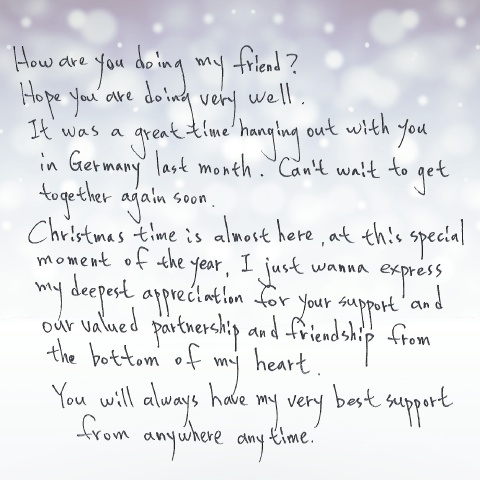 How are you doing my friend?
Hope you are doing very well.
It was a great time hanging out with you
in Germany last month. Can't wait to get
together again soon.
Christmas time is almost here, at this special
moment of the year, I just wanna express
my deepest appreciation for your support and
our valued partnership and friendship from
the bottom of my heart.
You will always have my very best support
from anywhere anytime.